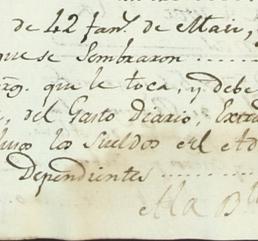 de 42 fan.s de Maiz,
que se Sembraron .......
que le toca, y debe
del Gasto Diario,
los Sueldos el Ad
Dependientes .........